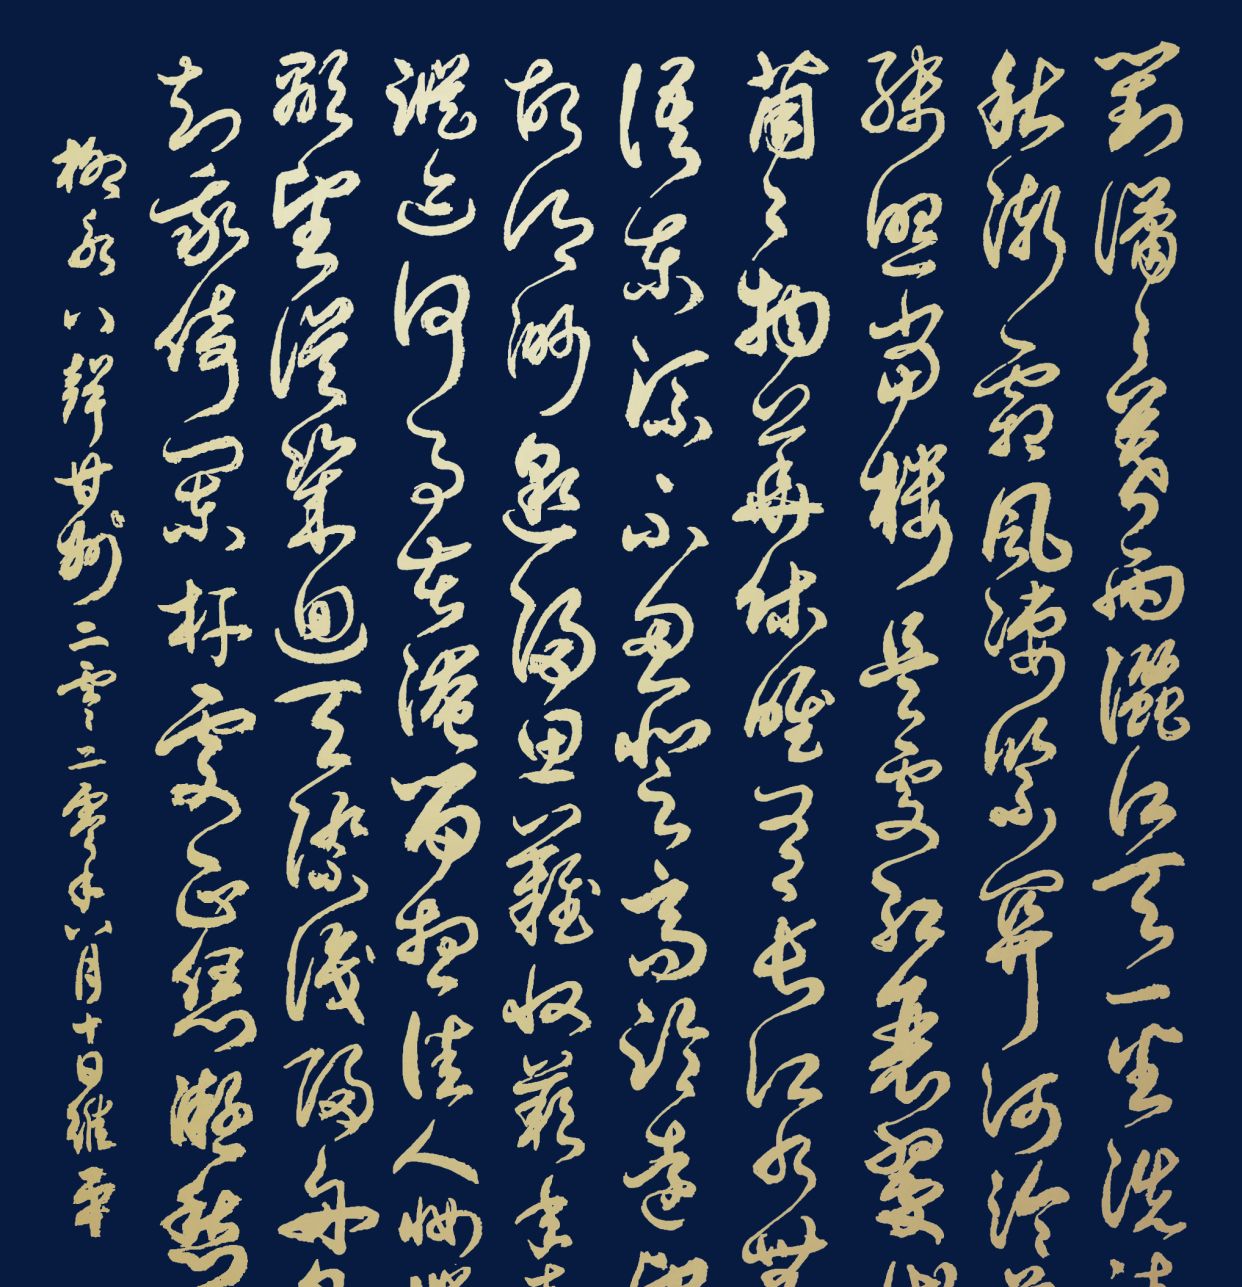 對瀟瀟暮雨灑江天一番洗
秋漸霜風淒緊關河冷
殘照當樓是處紅衰翠
苒苒物華休唯有長江水無
語東流不忍登高臨遠
故鄉渺邈歸思難收歎年
蹤跡何事苦淹留想佳人妝
顒望誤幾回天際識歸舟
知我倚闌杆處正恁凝愁
柳永八聲甘州二零二零年八月十日維平